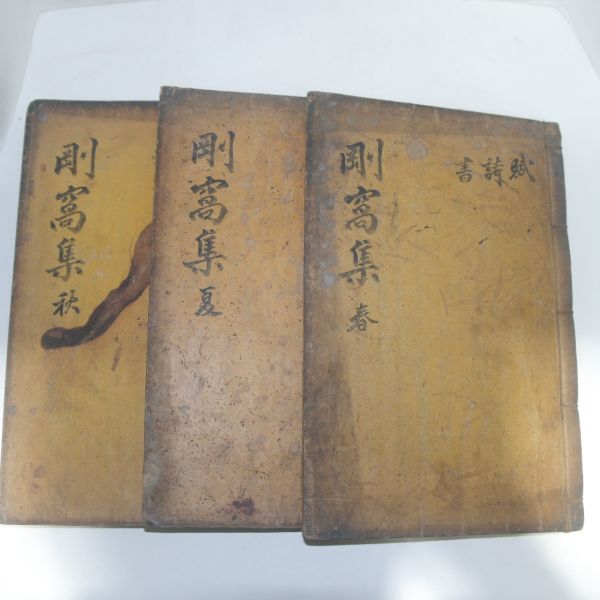 剛窩集 春
賦詩書
剛窩集 夏
剛窩集 秋